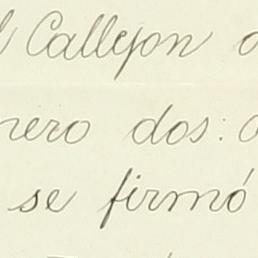 l Callejon d
nero dos: 
se firmó